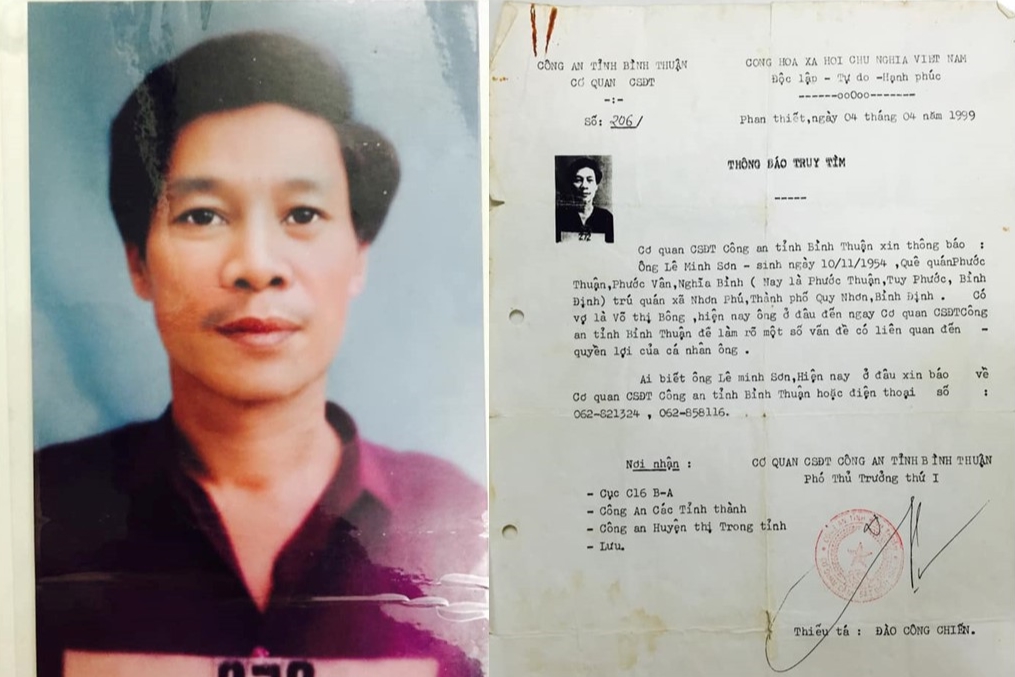 272
CÔNG AN TỈNH BÌNH THUẬN
CƠ QUAN CSĐT
-:-
Số: 206/
CỘNG HÒA XÃ HỘI CHỦ NGHĨA VIỆT NAM
Độc lập - Tự do -Hạnh phúc
------ooOoo-------
Phan thiết,ngày 04 tháng 04 năm 1999
THÔNG BÁO TRUY TÌM
-----
272
Cơ quan CSĐT Công an tỉnh Bình Thuận xin thông báo :
Ông Lê Minh Sơn - sinh ngày 10/11/1954 ,Quê quánPhước
Thuận,Phước Vân,Nghĩa Bình ( Nay là Phước Thuận,Tuy Phước, Bình
Định) trú quán xã Nhơn Phú,Thành phố Quy Nhơn,Bình Định . Có
vợ là Võ thị Bông ,hiện nay ông ở đâu đến ngay Cơ quan CSĐTCông
an tỉnh Bình Thuận để làm rõ một số vấn đề có liên quan đến -
quyền lợi của cá nhân ông .
Ai biết ông Lê minh Sơn,Hiện nay ở đâu xin báo về
Cơ quan CSĐT Công an tỉnh Bình Thuận hoặc điện thoại số :
062-821324 , 062-858116.
Nơi nhận :
- Cục C16 B-A
- Công An Các Tỉnh thành
- Công an Huyện thị Trong tỉnh
- Lưu.
CƠ QUAN CSĐT CÔNG AN TỈNH BÌNH THUẬN
Phó Thủ Trưởng thứ I
Thiếu tá : ĐÀO CÔNG CHIẾN.